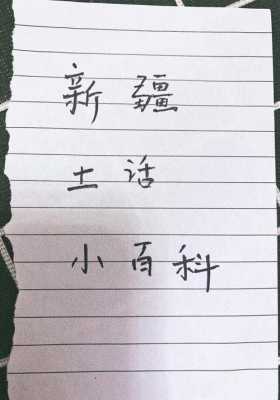 新疆
土话
小百科